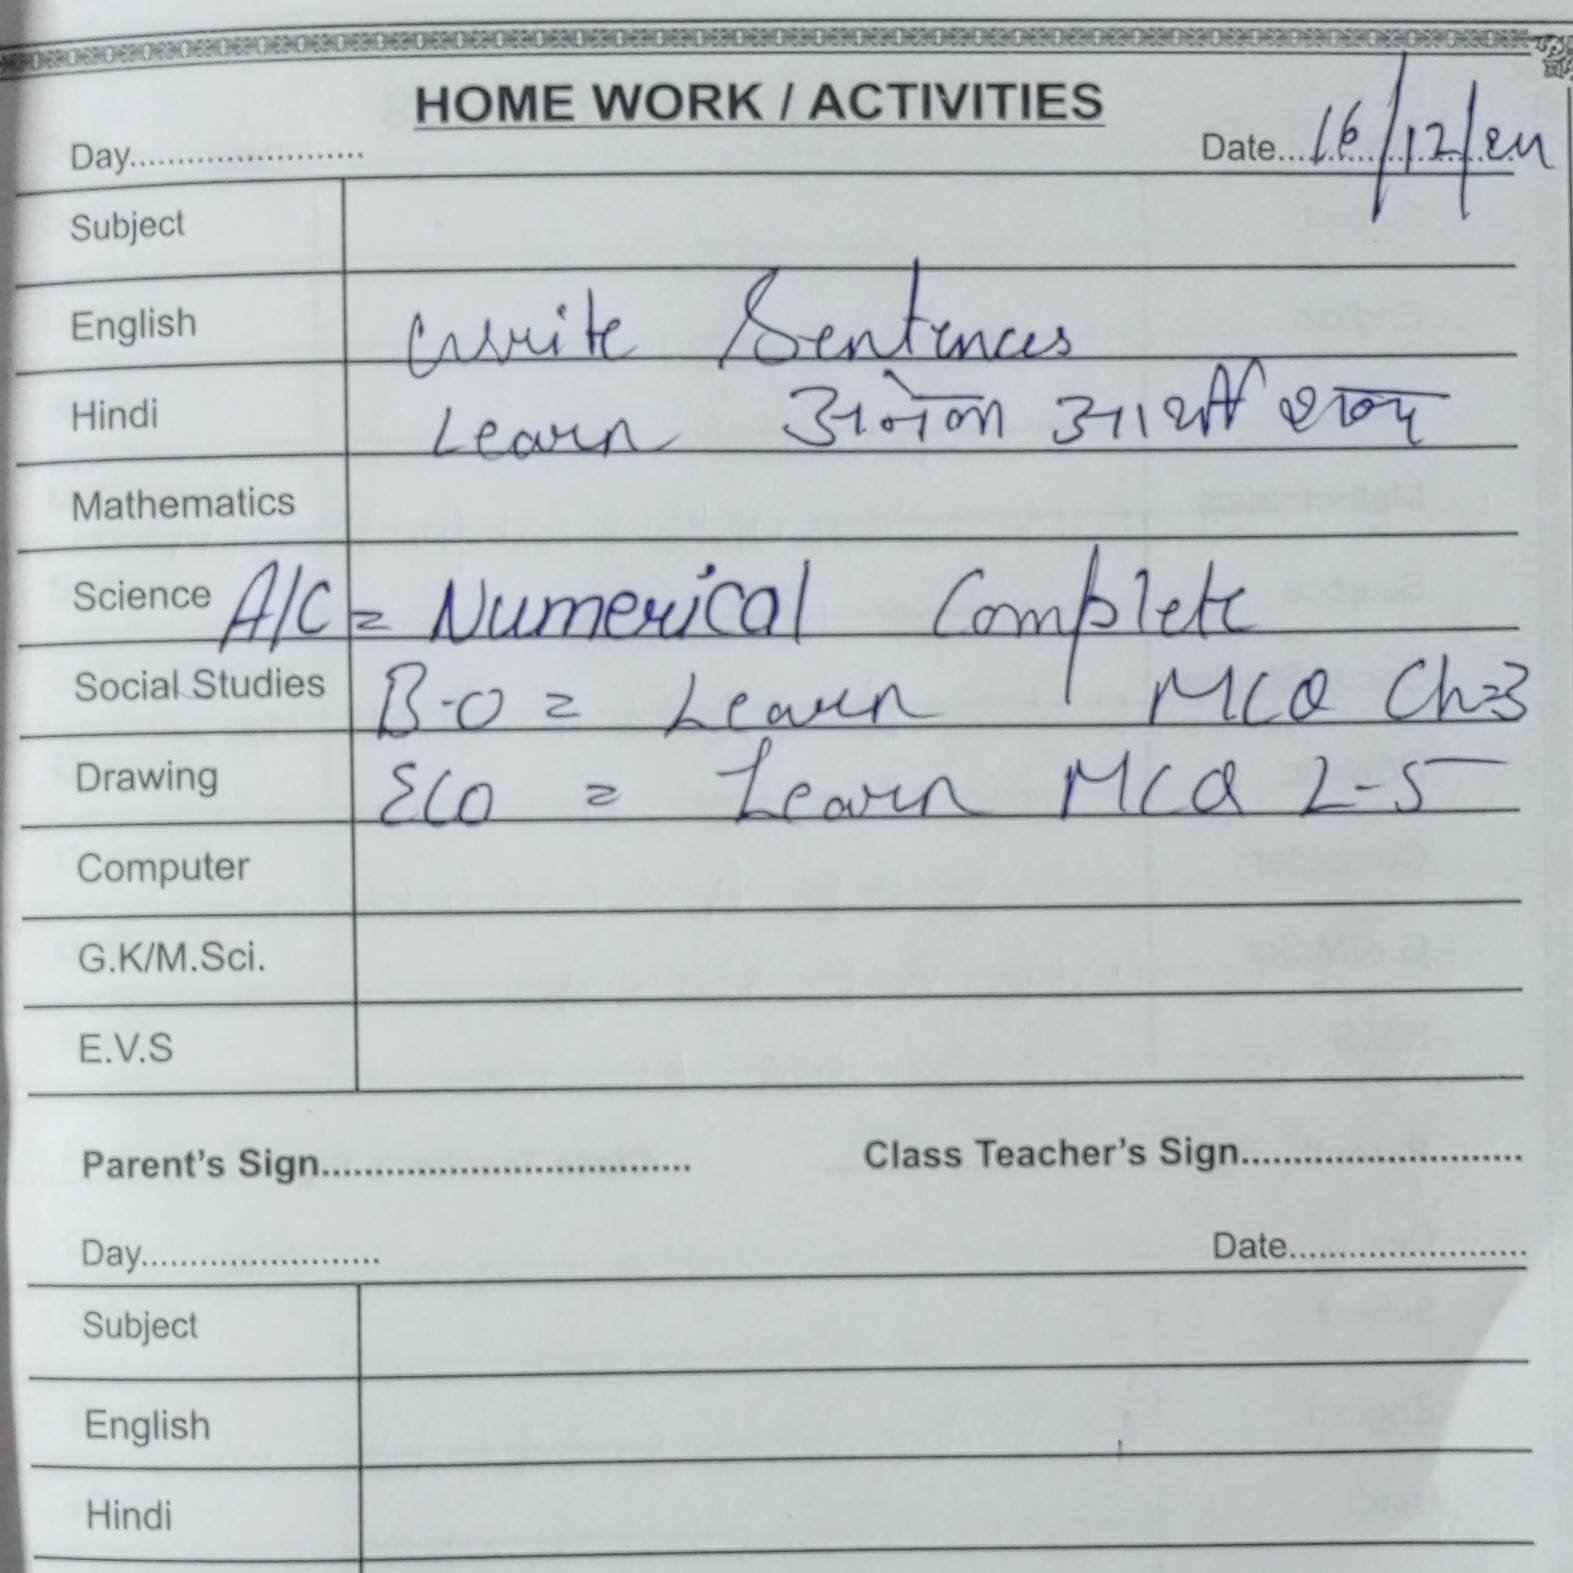 HOME WORK / ACTIVITIES
Day........................ Date...16/12/24
Subject
English Write Sentences
Hindi Learn अनेक आर्थी शब्द
Mathematics
Science A/C = Numerical Complete
Social Studies B.O = Learn MCQ Ch-3
Drawing ECO = Learn MCQ 2-5
Computer
G.K/M.Sci.
E.V.S
Parent's Sign.................................... Class Teacher's Sign............................
Day........................ Date........................
Subject
English
Hindi